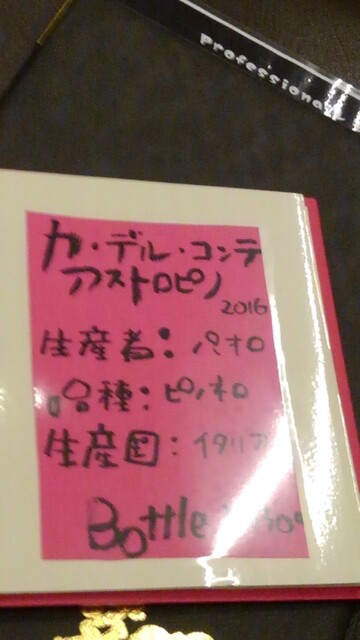 Professional
カ・デル・コンテ
アストロピノ
2016
生産者：パオロ
品種：ピノネロ
生産国：イタリア
Bottle